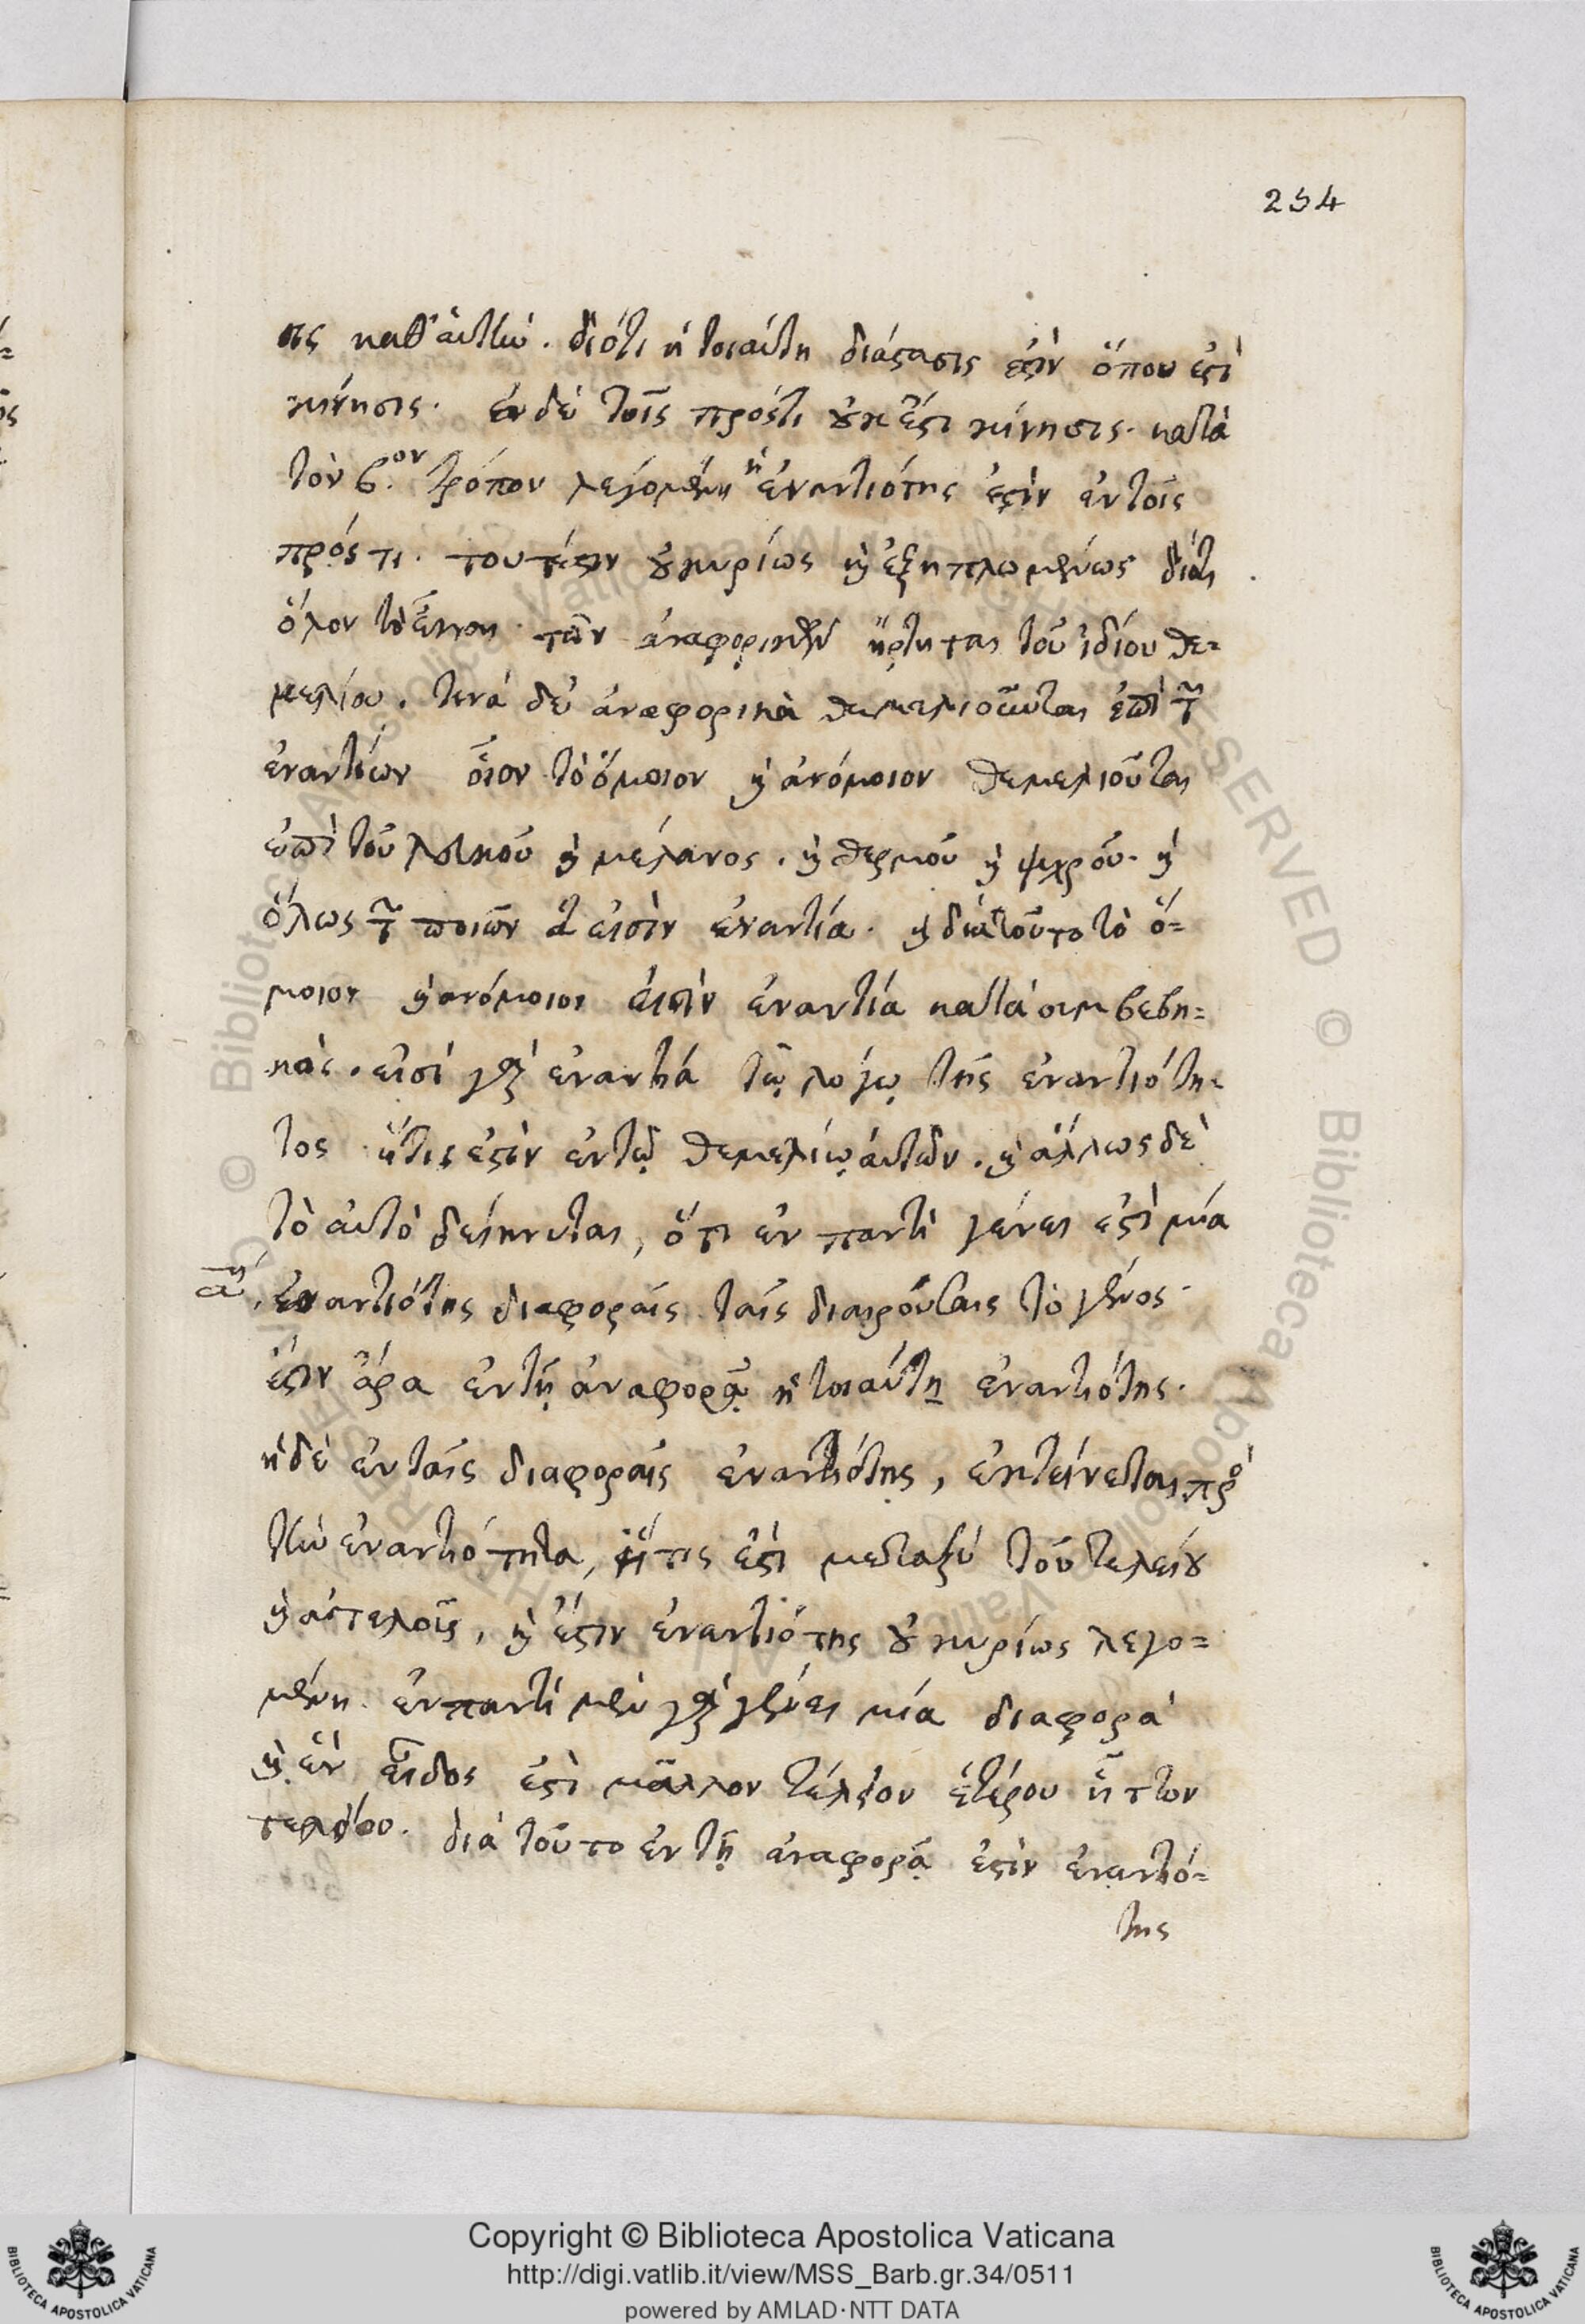 254
σις καθ' ἀυτὴν. διότι ἡ τοιαύτη διάστασις ἐστὶν ὅπου ἐστὶ
κίνησις. ἐν δὲ τοῖς πρόστι οὐκ ἔστι κίνησις. κατὰ
τὸν β.ον τρόπον λεγομένη ἡ ἐναντιότης ἐστὶν ἐν τοῖς
πρός τι. τουτέστιν οὐ κυρίως καὶ ἐξηπλωμένως διότι
ὅλον τὸ τῶν ἀναφορικῶν ἤρτηται τοῦ ἰδίου θε=
μελίου. τινὰ δὲ ἀναφορικὰ θεμελιοῦνται ἐπὶ τῶν
ἐναντίων οἷον τὸ ὅμοιον καὶ ἀνόμοιον θεμελιοῦται
ἐπὶ τοῦ λευκοῦ καὶ μέλανος. καὶ θερμοῦ καὶ ψυχροῦ. καὶ
ὅλως τῶν ποιῶν ἃ εἰσὶν ἐναντία. καὶ διὰ τοῦτο τὸ ὅ=
μοιον καὶ ἀνόμοιον εἰσὶν ἐναντία κατὰ συμβεβη=
κός. εἰσὶ γὰρ ἐναντία τῷ λόγῳ τῆς ἐναντιότη=
τος ἥτις ἐστὶν ἐν τῷ θεμελίῳ ἀυτῶν. καὶ ἄλλως δὲ
τὸ ἀυτὸ δείκνυται, ὅτι ἐν παντὶ γένει ἐστὶ μία
αη ἐναντιότης διαφοραῖς ταῖς διαιρούσαις τὸ γένος.
ἔστιν ἄρα ἐν τῇ ἀναφορᾷ ἡ τοιαύτη ἐναντιότης.
ἡ δὲ ἐν ταῖς διαφοραῖς ἐναντιότης, ἐκτείνεται πρὸς
τὴν ἐναντιότητα, ἥτις ἐστὶ μεταξὺ τοῦ τελείου
καὶ ἀτελοῦς, καὶ ἔστιν ἐναντιότης οὐ κυρίως λεγο=
μένη. ἐν παντὶ μὲν γὰρ γένει μία διαφορὰ
καὶ ἓν εἶδος ἐστὶ μᾶλλον τέλειον ἑτέρου ἧττον
τελείου. διὰ τοῦτο ἐν τῇ ἀναφορᾷ ἐστὶν ἐναντιό=
της
Copyright © Biblioteca Apostolica Vaticana
http://digi.vatlib.it/view/MSS_Barb.gr.34/0511
powered by AMLAD·NTT DATA